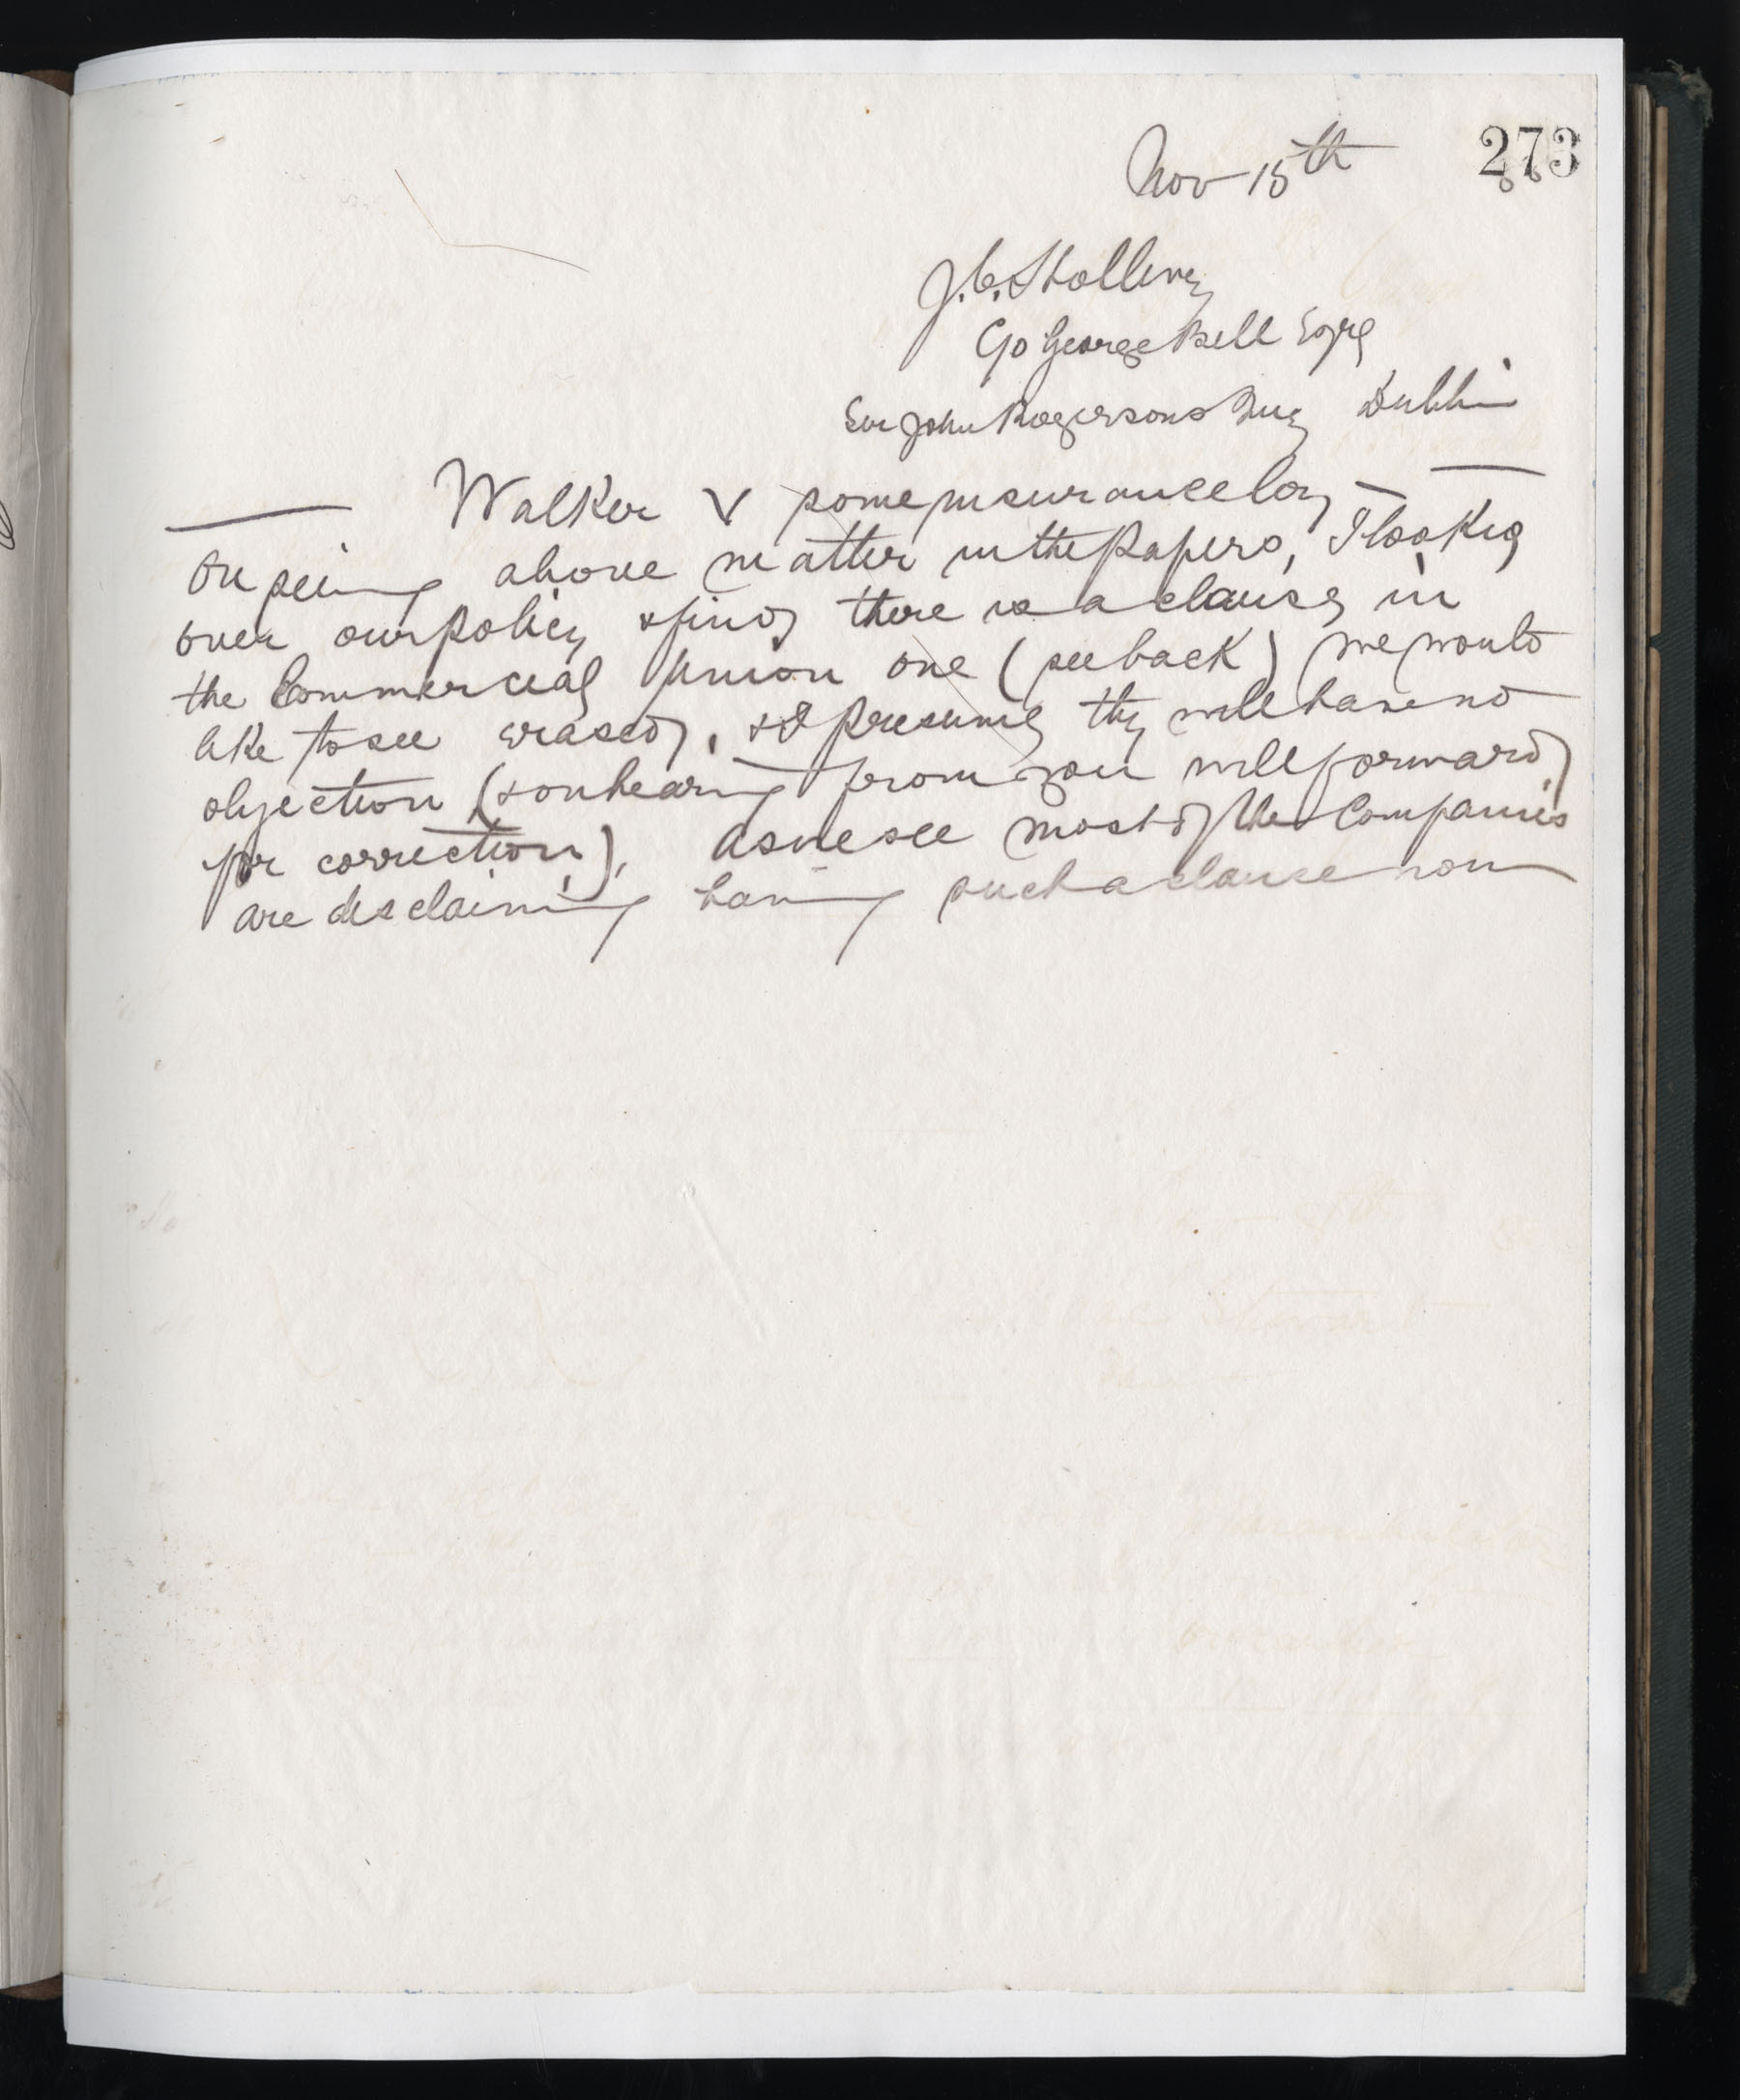 273
Nov 15th
J.C. Stallen
C/o George Bell Esqre
Sir John Rogersons Quay Dublin
Walker V some insurance Coy
On seeing above matter in the Papers, I looked
over our policy & find there is a clause in
the Commercial Union one (see back) we would
like to see erased, & I presume they will have no
objection (& on hearing from you will forward
for correction), as we see most of the Companies
are disclaiming having such a clause now